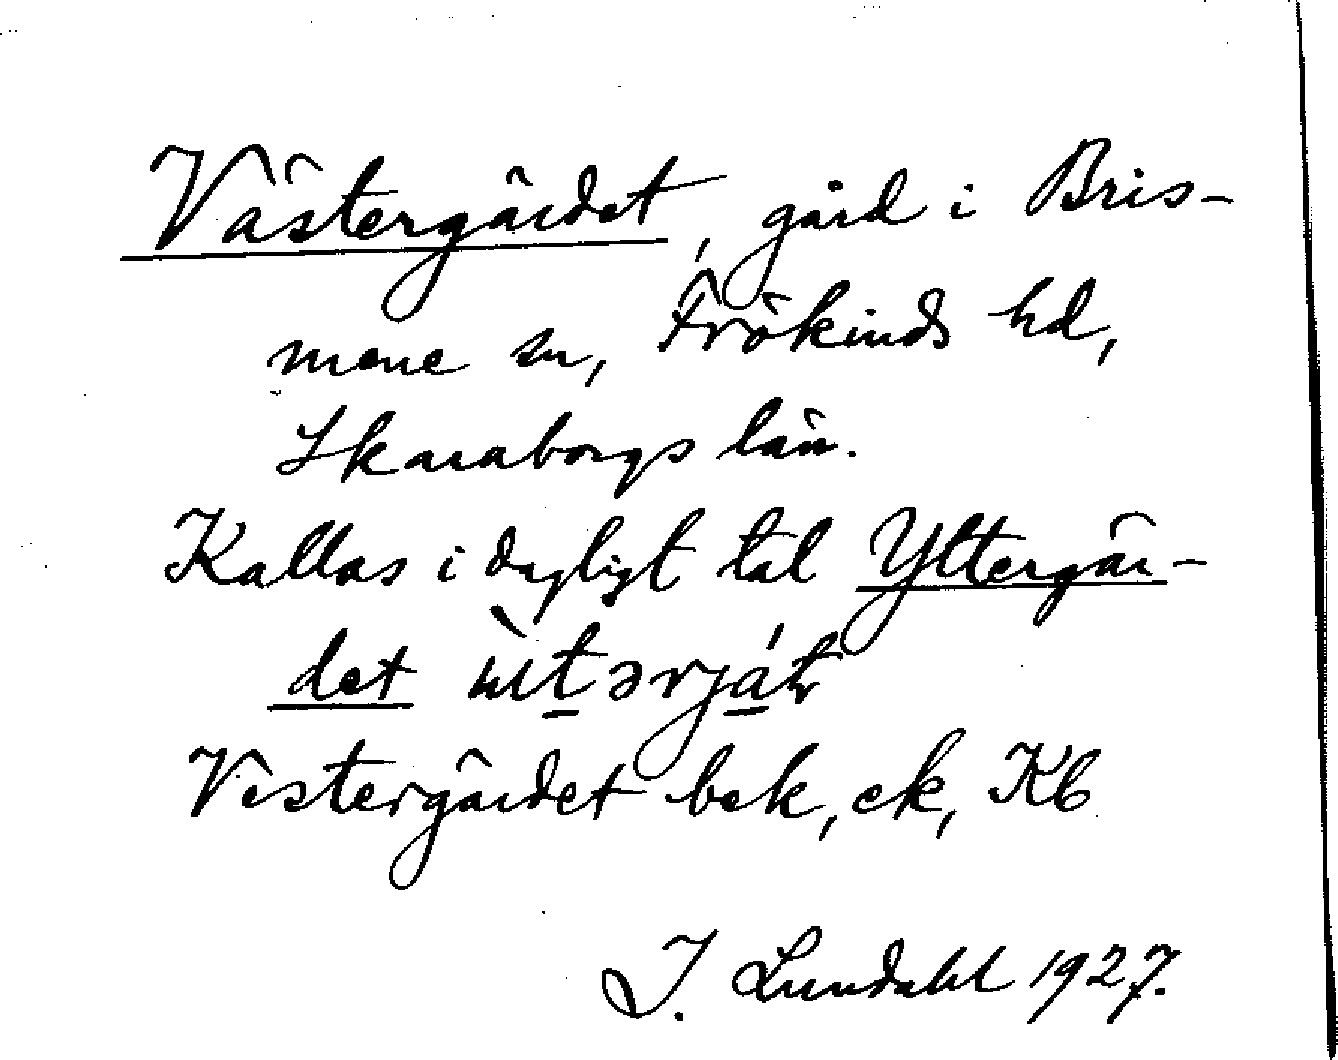 Västergärdet, gård i Bris-
mene sn, Frökinds hd,
Skaraborgs län.
Kallas i dagligt tal Yttergär-
det
Västergärdet bok, ek, Kb
I. Lundahl 1927.